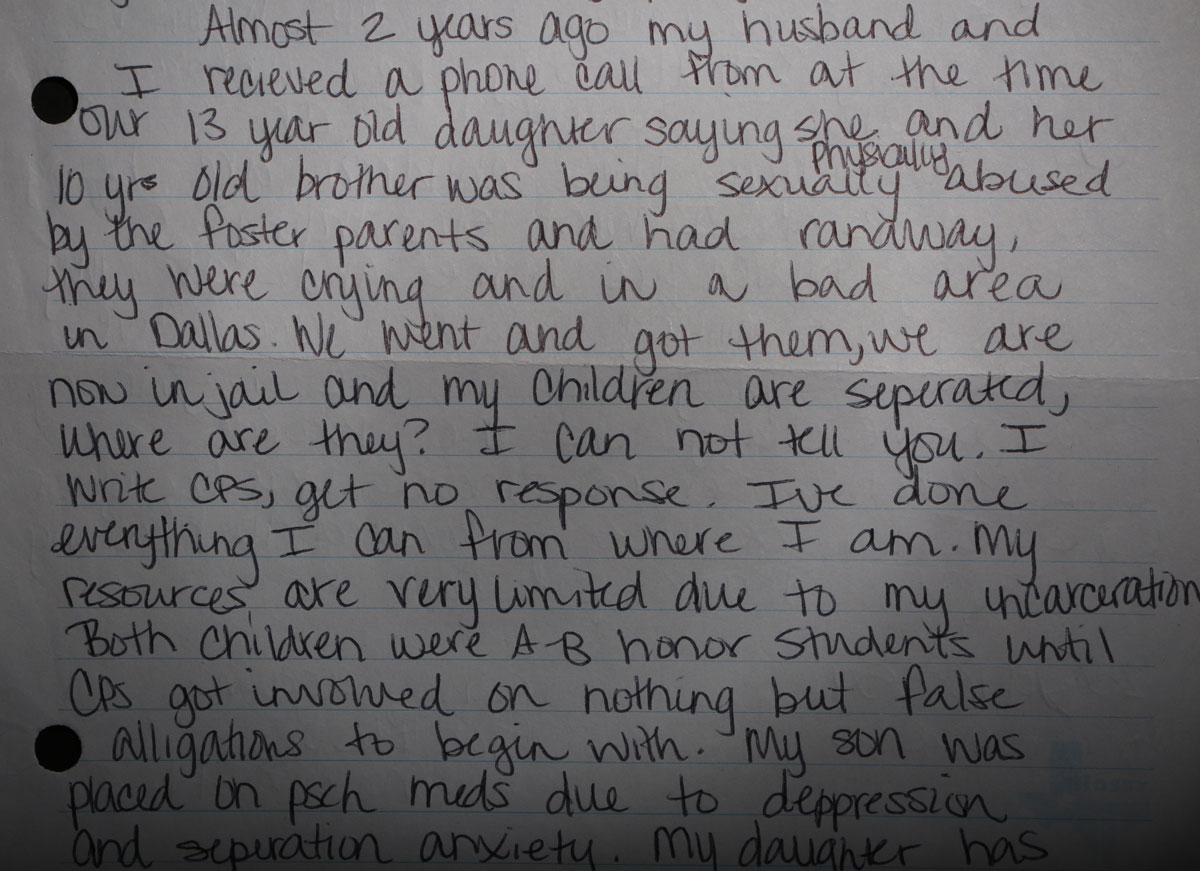 Almost 2 years ago my husband and
I recieved a phone call from at the time
our 13 year old daughter saying she and her
physically
10 yrs old brother was being sexually abused
by the foster parents and had randway,
they were crying and in a bad area
in Dallas. We went and got them, we are
now in jail and my children are seperated,
where are they? I can not tell you. I
write CPS, get no response. Ive done
everything I can from where I am. My
resources are very limited due to my incarceration
Both children were A-B honor students until
CPS got involved on nothing but false
alligations to begin with. My son was
placed on psch meds due to deppression
and seperation anxiety. My daughter has